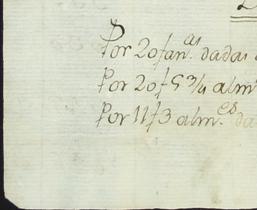 Por 20 fan.as dadas
Por 20 f 5 3/4 alm
Por 11 f 3 alm.es da